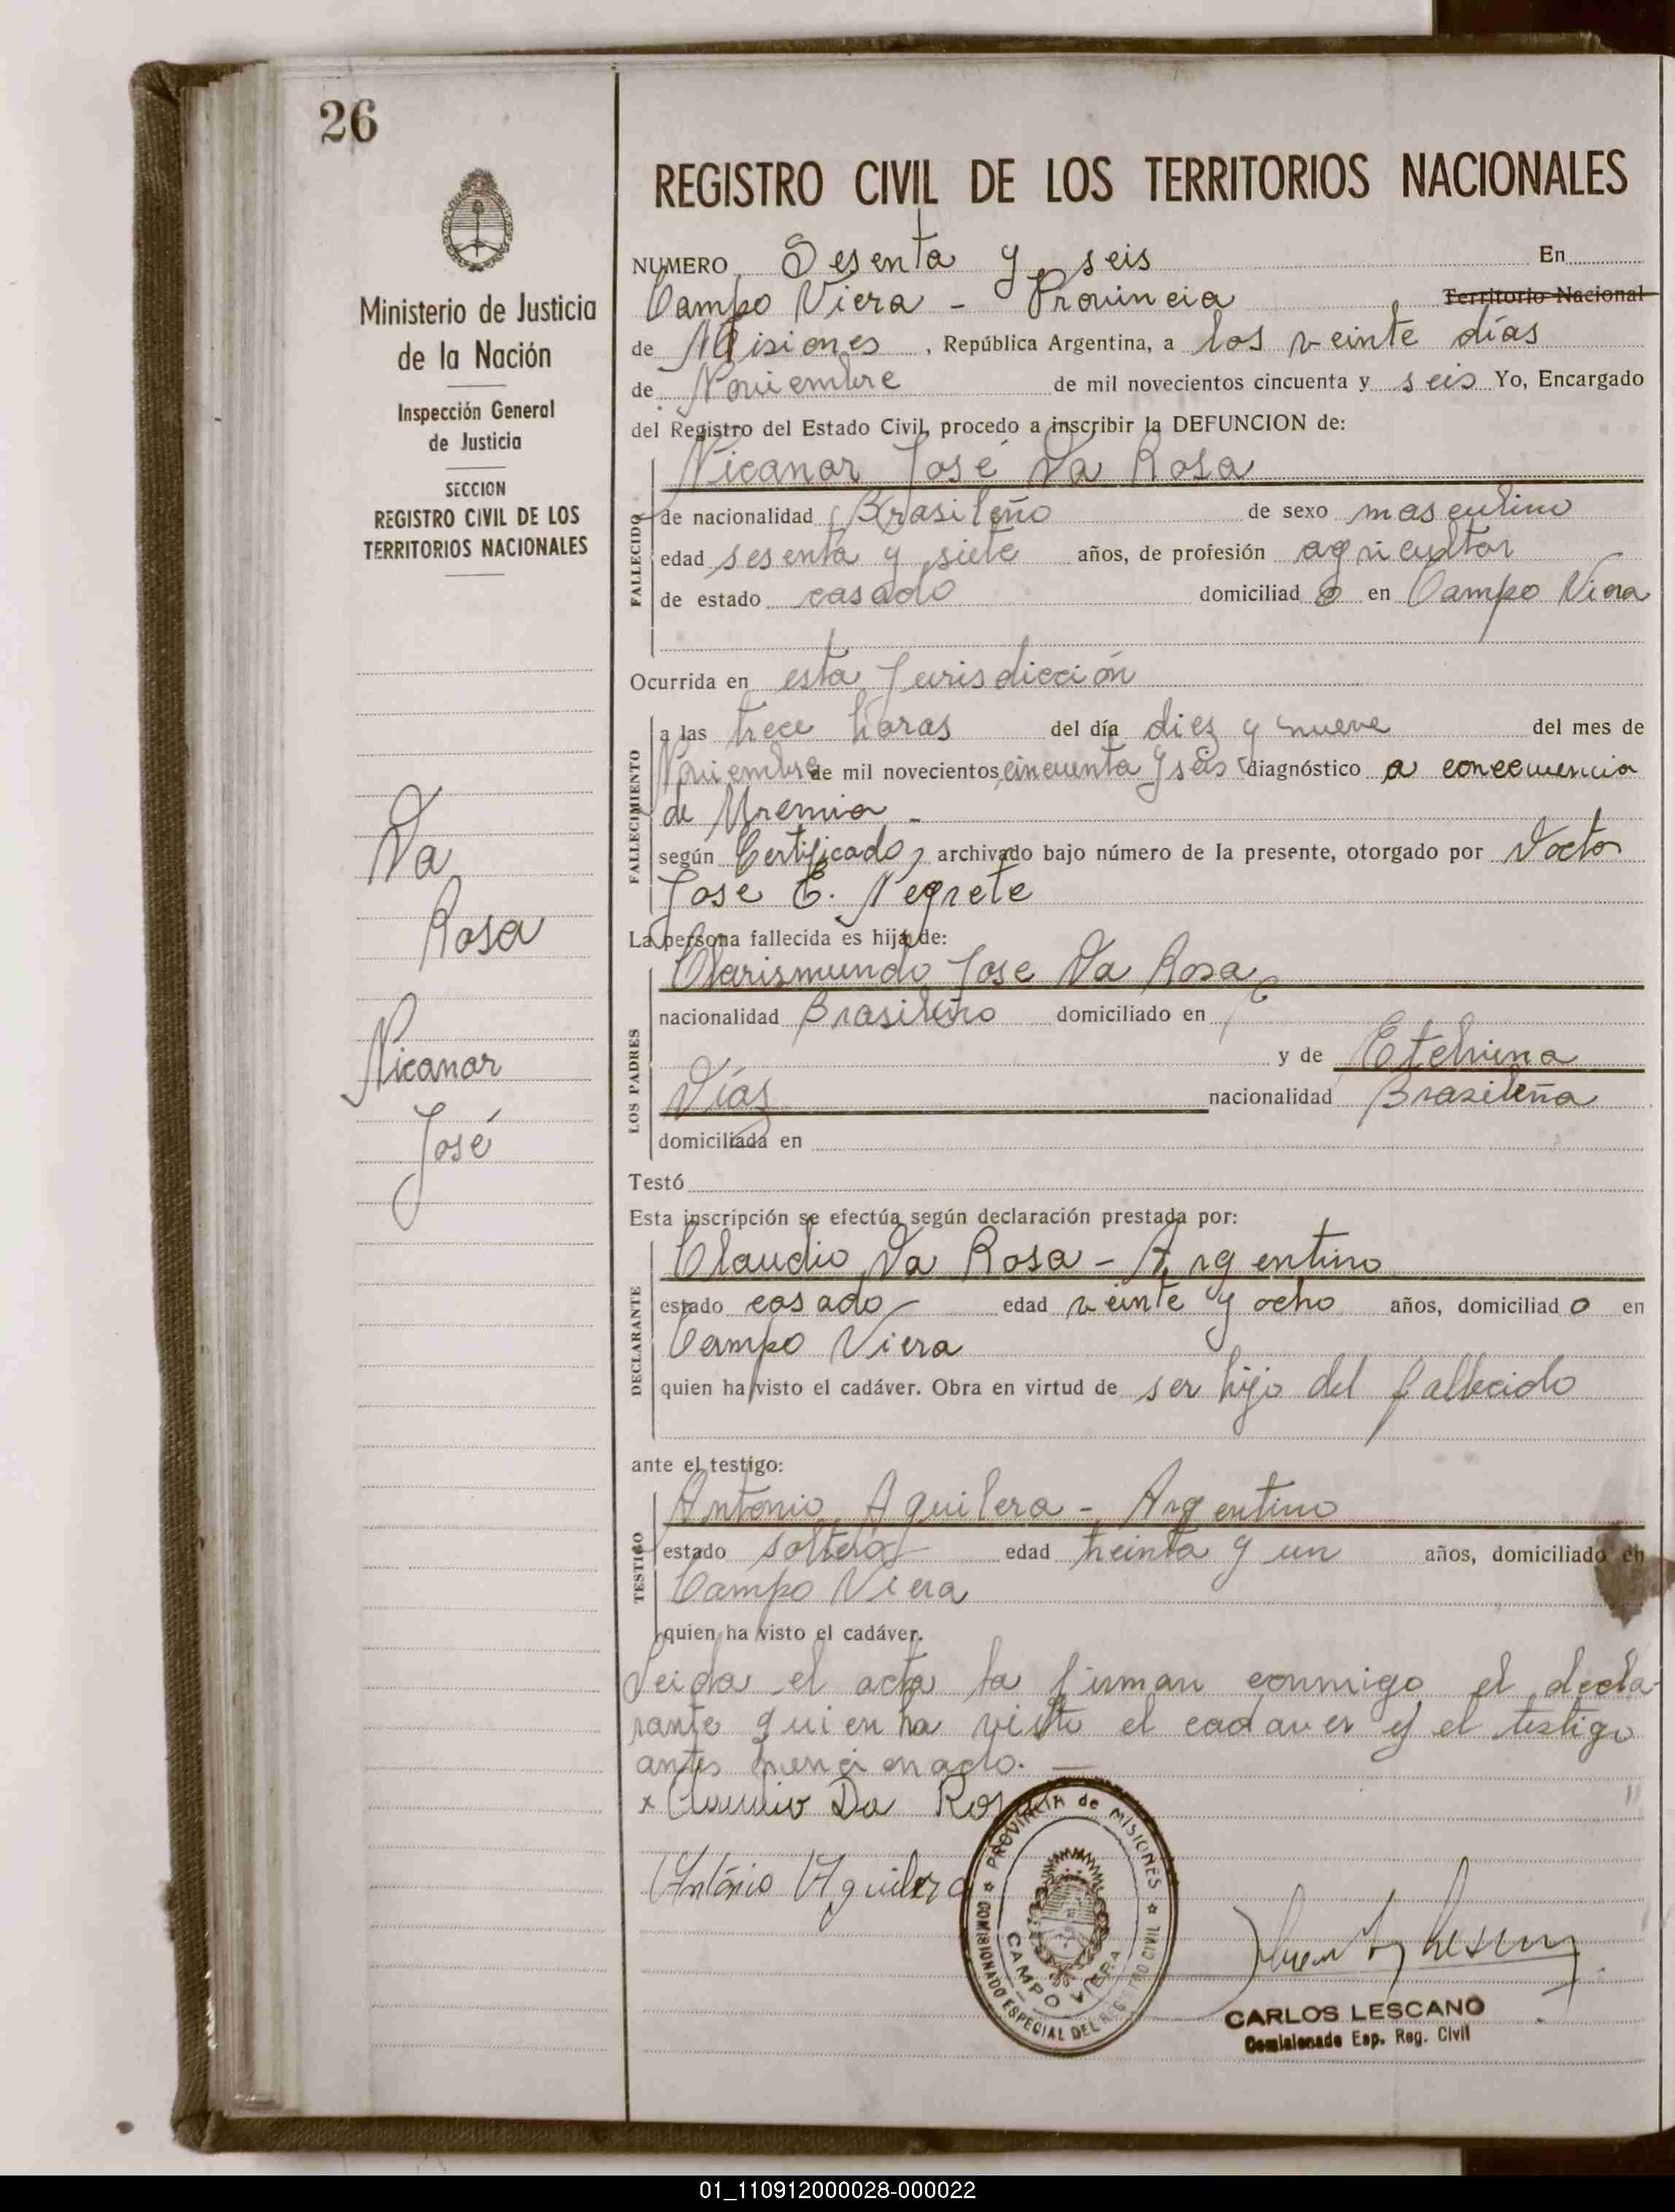 26
Ministerio de Justicia
de la Nación
Inspección General
de Justicia
SECCION
REGISTRO CIVIL DE LOS
TERRITORIOS NACIONALES
Da
Rosa
Nicanor
José
REGISTRO CIVIL DE LOS TERRITORIOS NACIONALES
NUMERO Sesenta y seis En
Campo Viera - Provincia Territorio Nacional
de Misiones, República Argentina, a los veinte días
de Noviembre de mil novecientos cincuenta y seis Yo, Encargado
del Registro del Estado Civil, procedo a inscribir la DEFUNCION de:
Nicanor José Da Rosa
FALLECIDO
de nacionalidad Brasileño de sexo masculino
edad sesenta y siete años, de profesión agricultor
de estado casado domiciliad o en Campo Viera
Ocurrida en esta Jurisdicción
FALLECIMIENTO
a las trece horas del día diez y nueve del mes de
Noviembre de mil novecientos cincuenta y seis diagnóstico a concecuencia
de Uremia -
según Certificado, archivado bajo número de la presente, otorgado por Doctor
Jose E. Negrete
La persona fallecida es hijo de:
LOS PADRES
Clarismundo Jose Da Rosa
nacionalidad Brasileño domiciliado en
y de Etelvina
Días nacionalidad Brasileña
domiciliada en
Testó
Esta inscripción se efectúa según declaración prestada por:
DECLARANTE
Claudio Da Rosa - Argentino
estado casado edad veinte y ocho años, domiciliad o en
Campo Viera
quien ha visto el cadáver. Obra en virtud de ser hijo del fallecido
ante el testigo:
TESTIGO
Antonio Aguilera - Argentino
estado soltero edad treinta y un años, domiciliado en
Campo Viera
quien ha visto el cadáver.
Leida el acta la firman conmigo el decla-
rante quien ha visto el cadaver y el testigo
antes mencionado. —
x Claudio Da Rosa
António Aguilera
PROVINCIA de MISIONES
COMISIONADO ESPECIAL DEL REGISTRO CIVIL
CAMPO VIERA
CARLOS LESCANO
Comisionado Esp. Reg. Civil
01_110912000028-000022